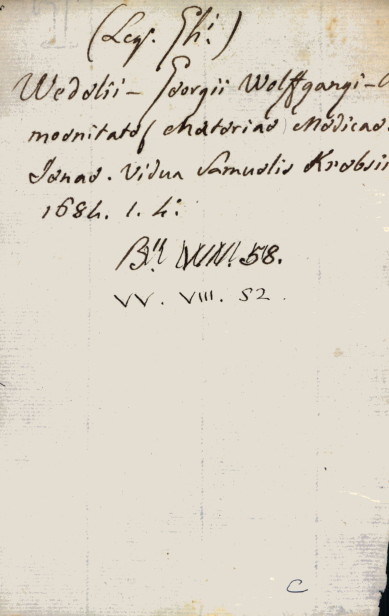 (Leg. Gh:)
Wedelii - Georgii Wolffgangi - A
moenitates Materiae Medicae.
Jenae. Vidua Samuelis Krebsii
1684. 1. 4:
58.
VV. VIII. 52.
C